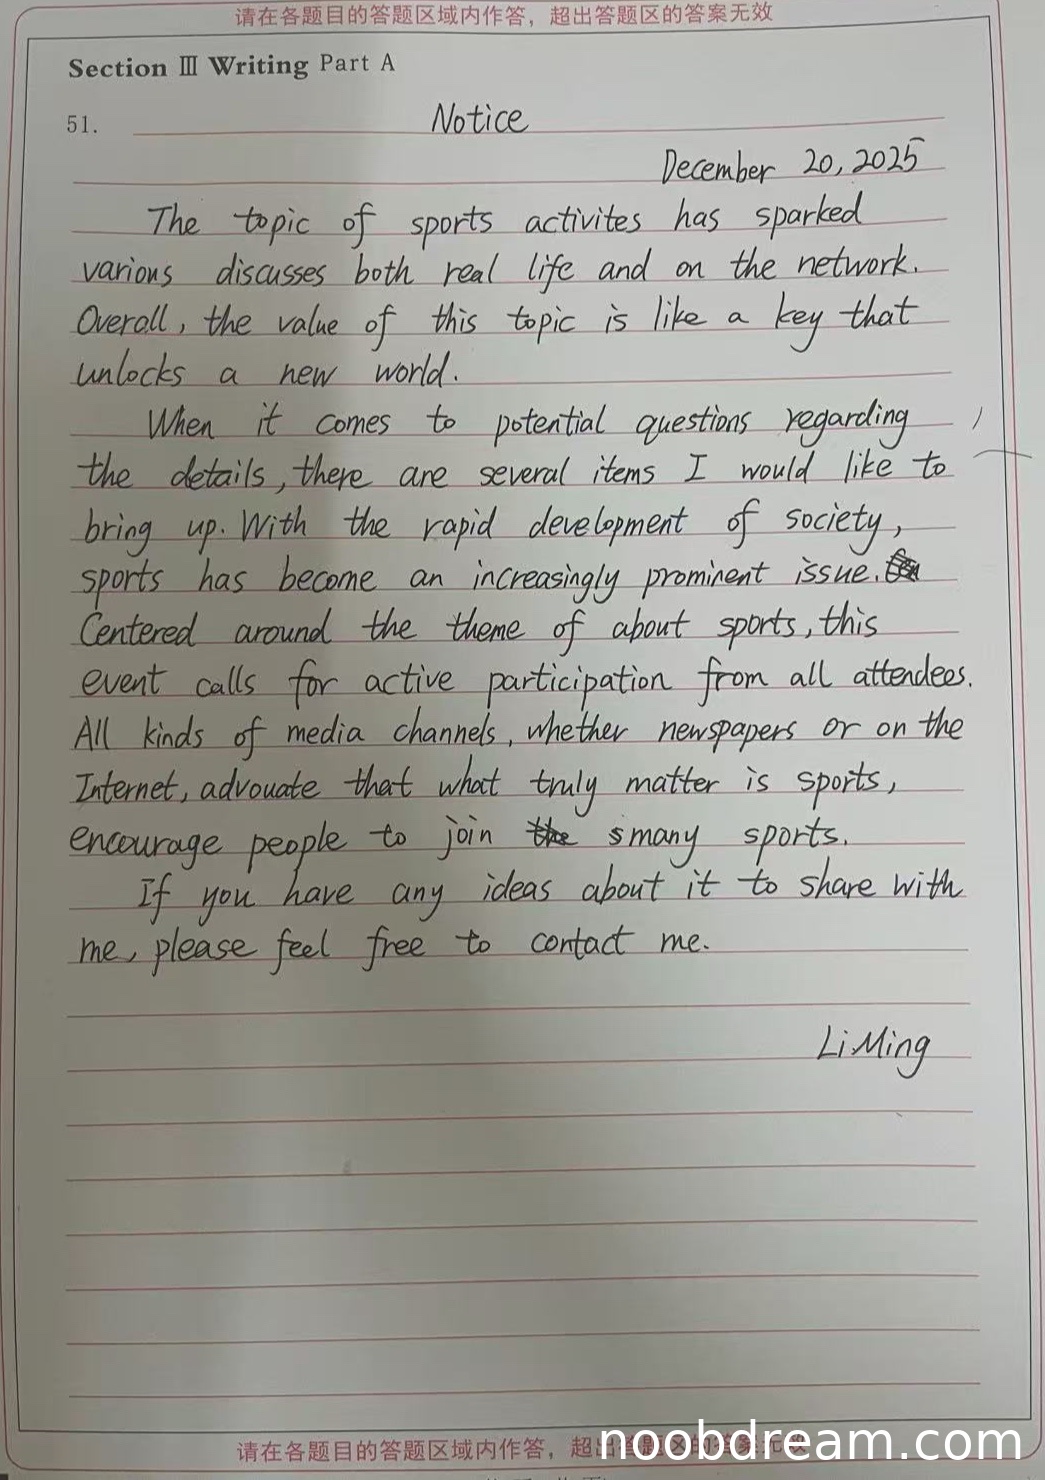 请在各题目的答题区域内作答，超出答题区的答案无效
Section Ⅲ Writing Part A
51.
Notice
December 20, 2025
The topic of sports activites has sparked
various discusses both real life and on the network.
Overall, the value of this topic is like a key that
unlocks a new world.
When it comes to potential questions regarding
the details, there are several items I would like to
bring up. With the rapid development of society,
sports has become an increasingly prominent issue.
Centered around the theme of about sports, this
event calls for active participation from all attendees.
All kinds of media channels, whether newspapers or on the
Internet, advouate that what truly matter is sports,
encourage people to join the smany sports.
If you have any ideas about it to share with
me, please feel free to contact me.
Li Ming
请在各题目的答题区域内作答，超出答题区的答案无效
noobdream.com